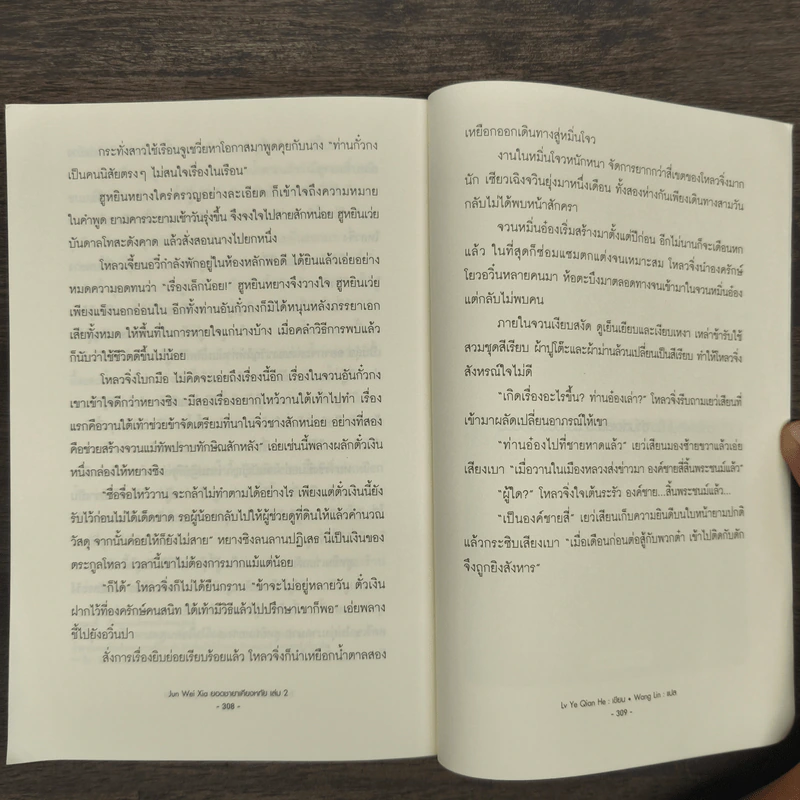 กระทั่งสาวใช้เรือนจูเชวี่ยหาโอกาสมาพูดคุยกับนาง “ท่านกั๋วกง
เป็นคนนิสัยตรงๆ ไม่สนใจเรื่องในเรือน”
ฮูหยินหยางใคร่ครวญอย่างละเอียด ก็เข้าใจถึงความหมาย
ในคำพูด ยามคารวะยามเช้าวันรุ่งขึ้น จึงจงใจไปสายสักหน่อย ฮูหยินเว่ย
บันดาลโทสะดังคาด แล้วสั่งสอนนางไปยกหนึ่ง
โหลวเจี้ยนอวี่กำลังพักอยู่ในห้องหลักพอดี ได้ยินแล้วเอ่ยอย่าง
หมดความอดทนว่า “เรื่องเล็กน้อย!” ฮูหยินหยางจึงวางใจ ฮูหยินเว่ย
เพียงแข็งนอกอ่อนใน อีกทั้งท่านอันกั๋วกงก็มิได้หนุนหลังภรรยาเอก
เสียทั้งหมด ให้พื้นที่ในการหายใจแก่นางบ้าง เมื่อคลำวิธีการพบแล้ว
ก็นับว่าใช้ชีวิตดีขึ้นไม่น้อย
โหลวจิ่งโบกมือ ไม่คิดจะเอ่ยถึงเรื่องนี้อีก เรื่องในจวนอันกั๋วกง
เขาเข้าใจดีกว่าหยางชิง “มีสองเรื่องอยากไหว้วานใต้เท้าไปทำ เรื่อง
แรกคือวานใต้เท้าช่วยข้าจัดเตรียมที่นาในจิ่วชางสักหน่อย อย่างที่สอง
คือช่วยสร้างจวนแม่ทัพปราบทักษิณสักหลัง” เอ่ยเช่นนี้พลางผลักตั๋วเงิน
หนึ่งกล่องให้หยางชิง
“ซื่อจื่อไหว้วาน จะกล้าไม่ทำตามได้อย่างไร เพียงแต่ตั๋วเงินนี้ยัง
รับไว้ก่อนไม่ได้เด็ดขาด รอผู้น้อยกลับไปให้ผู้ช่วยดูที่ดินให้แล้วคำนวณ
วัสดุ จากนั้นค่อยให้ก็ยังไม่สาย” หยางชิงลนลานปฏิเสธ นี่เป็นเงินของ
ตระกูลโหลว เวลานี้เขาไม่ต้องการมากแม้แต่น้อย
“ก็ได้” โหลวจิ่งก็ไม่ได้ยืนกราน “ข้าจะไม่อยู่หลายวัน ตั๋วเงิน
ฝากไว้ที่องครักษ์คนสนิท ใต้เท้ามีวิธีแล้วไปปรึกษาเขาก็พอ” เอ่ยพลาง
ชี้ไปยังอวิ๋นปา
สั่งการเรื่องยิบย่อยเรียบร้อยแล้ว โหลวจิ่งก็นำเหยือกน้ำตาลสอง
Jun Wei Xia ยอดชายาเคียงหทัย เล่ม 2
- 308 -
เหยือกออกเดินทางสู่หมิ่นโจว
งานในหมิ่นโจวหนักหนา จัดการยากกว่าสี่เขตของโหลวจิ่งมาก
นัก เซียวเฉิงจวินยุ่งมาหนึ่งเดือน ทั้งสองห่างกันเพียงเดินทางสามวัน
กลับไม่ได้พบหน้าสักครา
จวนหมิ่นอ๋องเริ่มสร้างมาตั้งแต่ปีก่อน อีกไม่นานก็จะเดือนหก
แล้ว ในที่สุดก็ซ่อมแซมตกแต่งจนเหมาะสม โหลวจิ่งนำองครักษ์
โยวอวิ๋นหลายคนมา ห้อตะบึงมาตลอดทางจนเข้ามาในจวนหมิ่นอ๋อง
แต่กลับไม่พบคน
ภายในจวนเงียบสงัด ดูเย็นเยียบและเงียบเหงา เหล่าข้ารับใช้
สวมชุดสีเรียบ ผ้าปูโต๊ะและผ้าม่านล้วนเปลี่ยนเป็นสีเรียบ ทำให้โหลวจิ่ง
สังหรณ์ใจไม่ดี
“เกิดเรื่องอะไรขึ้น? ท่านอ๋องเล่า?” โหลวจิ่งรีบถามเยว่เสียนที่
เข้ามาผลัดเปลี่ยนอาภรณ์ให้เขา
“ท่านอ๋องไปที่ชายหาดแล้ว” เยว่เสียนมองซ้ายขวาแล้วเอ่ย
เสียงเบา “เมื่อวานในเมืองหลวงส่งข่าวมา องค์ชายสี่สิ้นพระชนม์แล้ว”
“ผู้ใด?” โหลวจิ่งใจเต้นระรัว องค์ชาย...สิ้นพระชนม์แล้ว...
“เป็นองค์ชายสี่” เยว่เสียนเก็บความยินดีบนใบหน้ายามปกติ
แล้วกระซิบเสียงเบา “เมื่อเดือนก่อนต่อสู้กับพวกต๋า เข้าไปติดกับดัก
จึงถูกยิงสังหาร”
Lv Ye Qian He : เขียน • Wang Lin : แปล
- 309 -